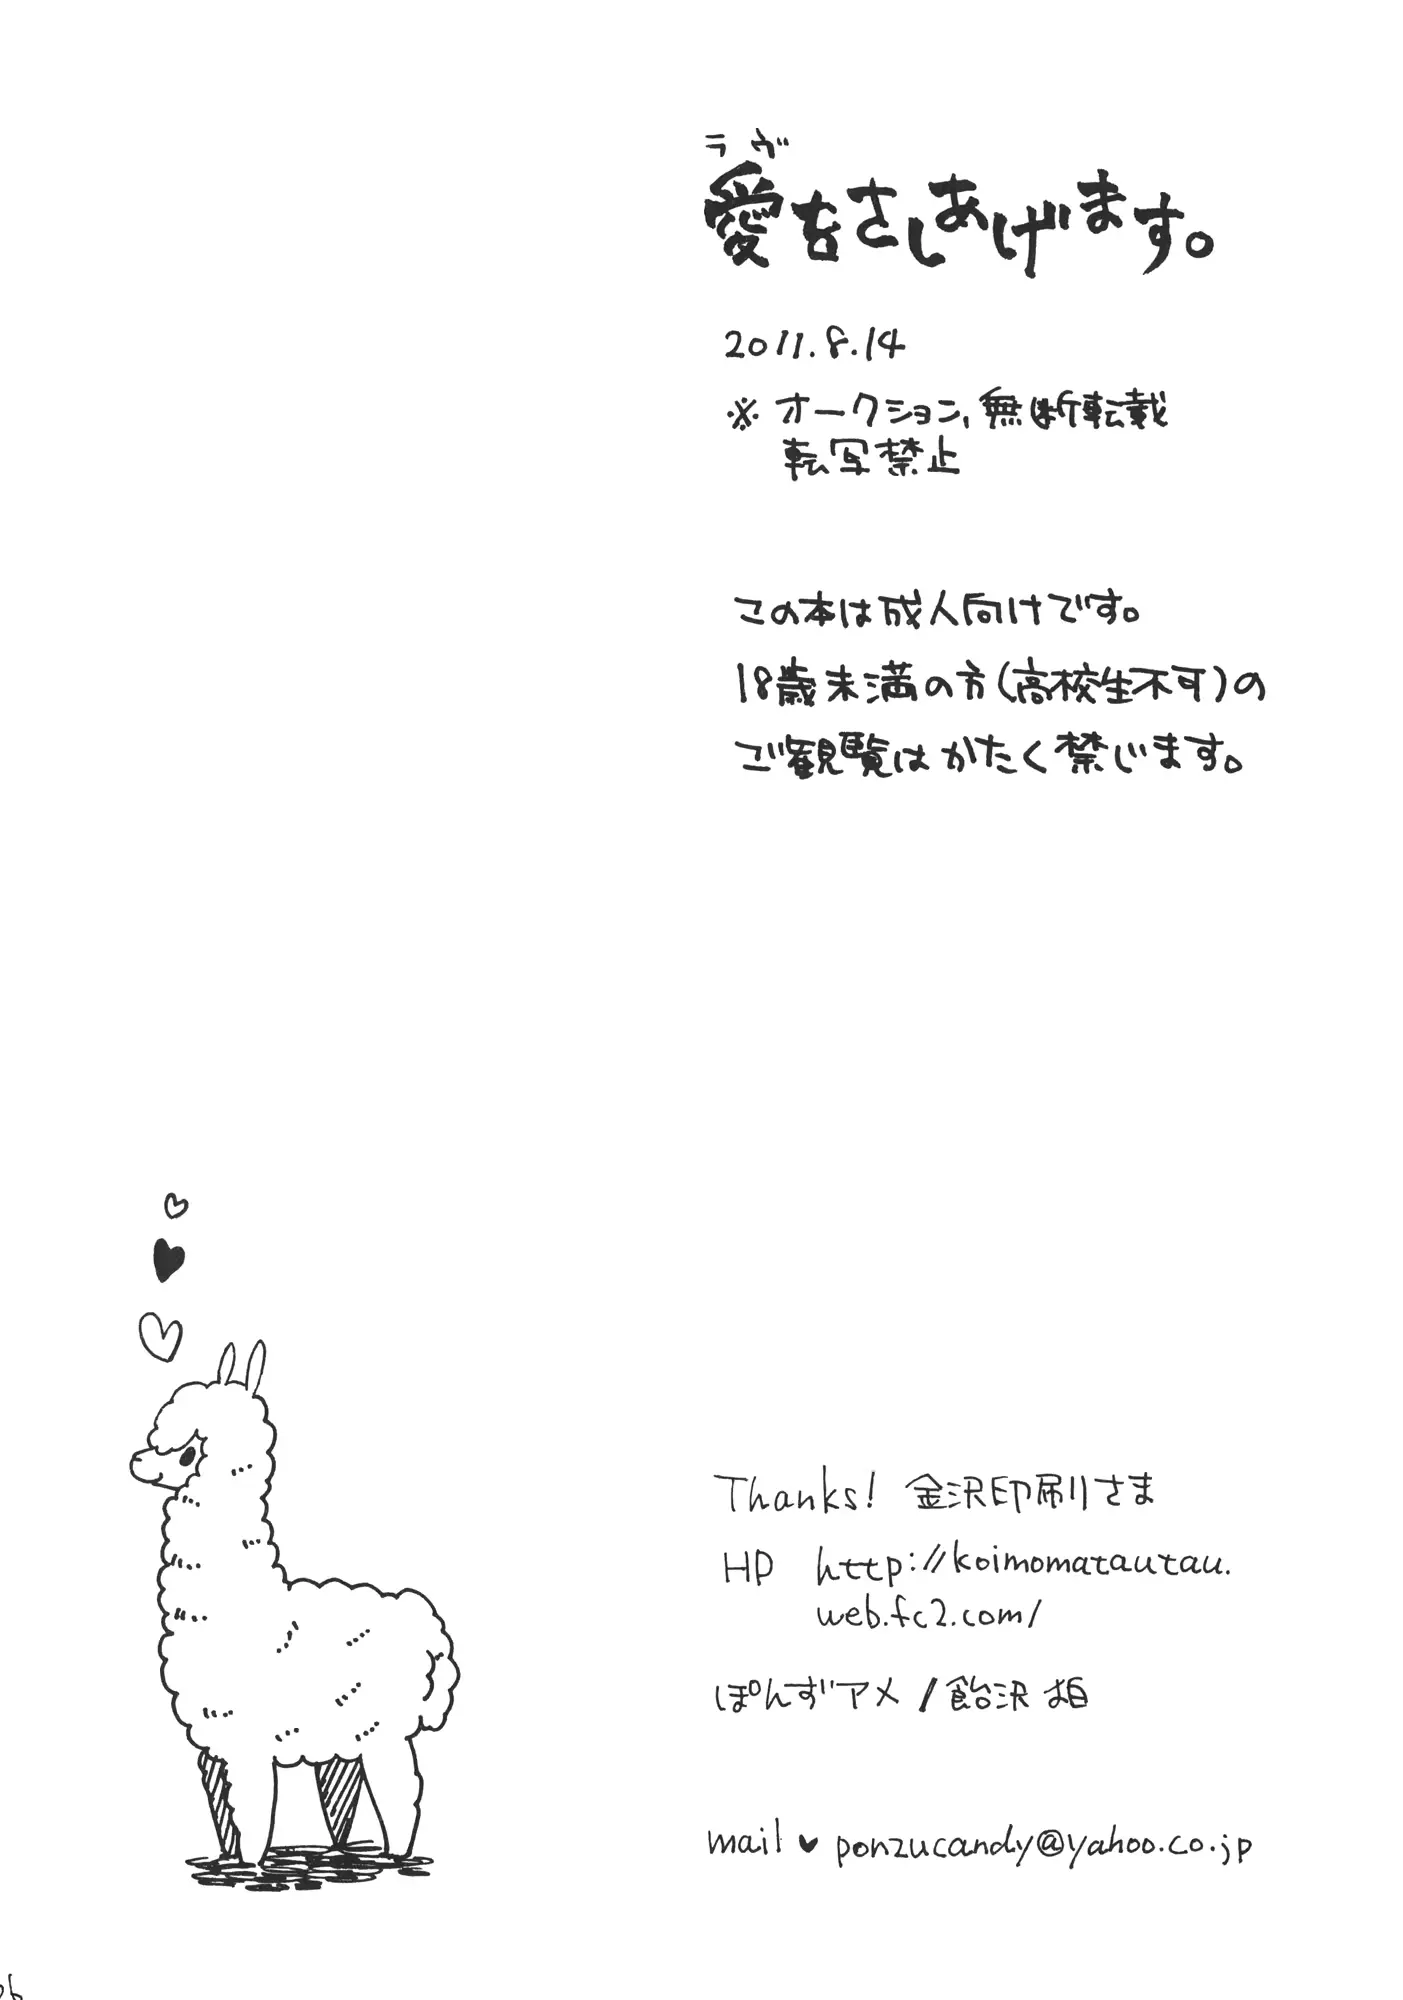 ラヴ
愛をさしあげます。
2011.8.14
※オークション、無断転載
転写禁止
この本は成人向けです。
18歳未満の方(高校生不可)の
ご観覧はかたく禁じます。
Thanks! 金沢印刷さま
HP http://koimomatautau.
web.fc2.com/
ぽんずアメ/飴沢
mail♥ponzucandy@yahoo.co.jp